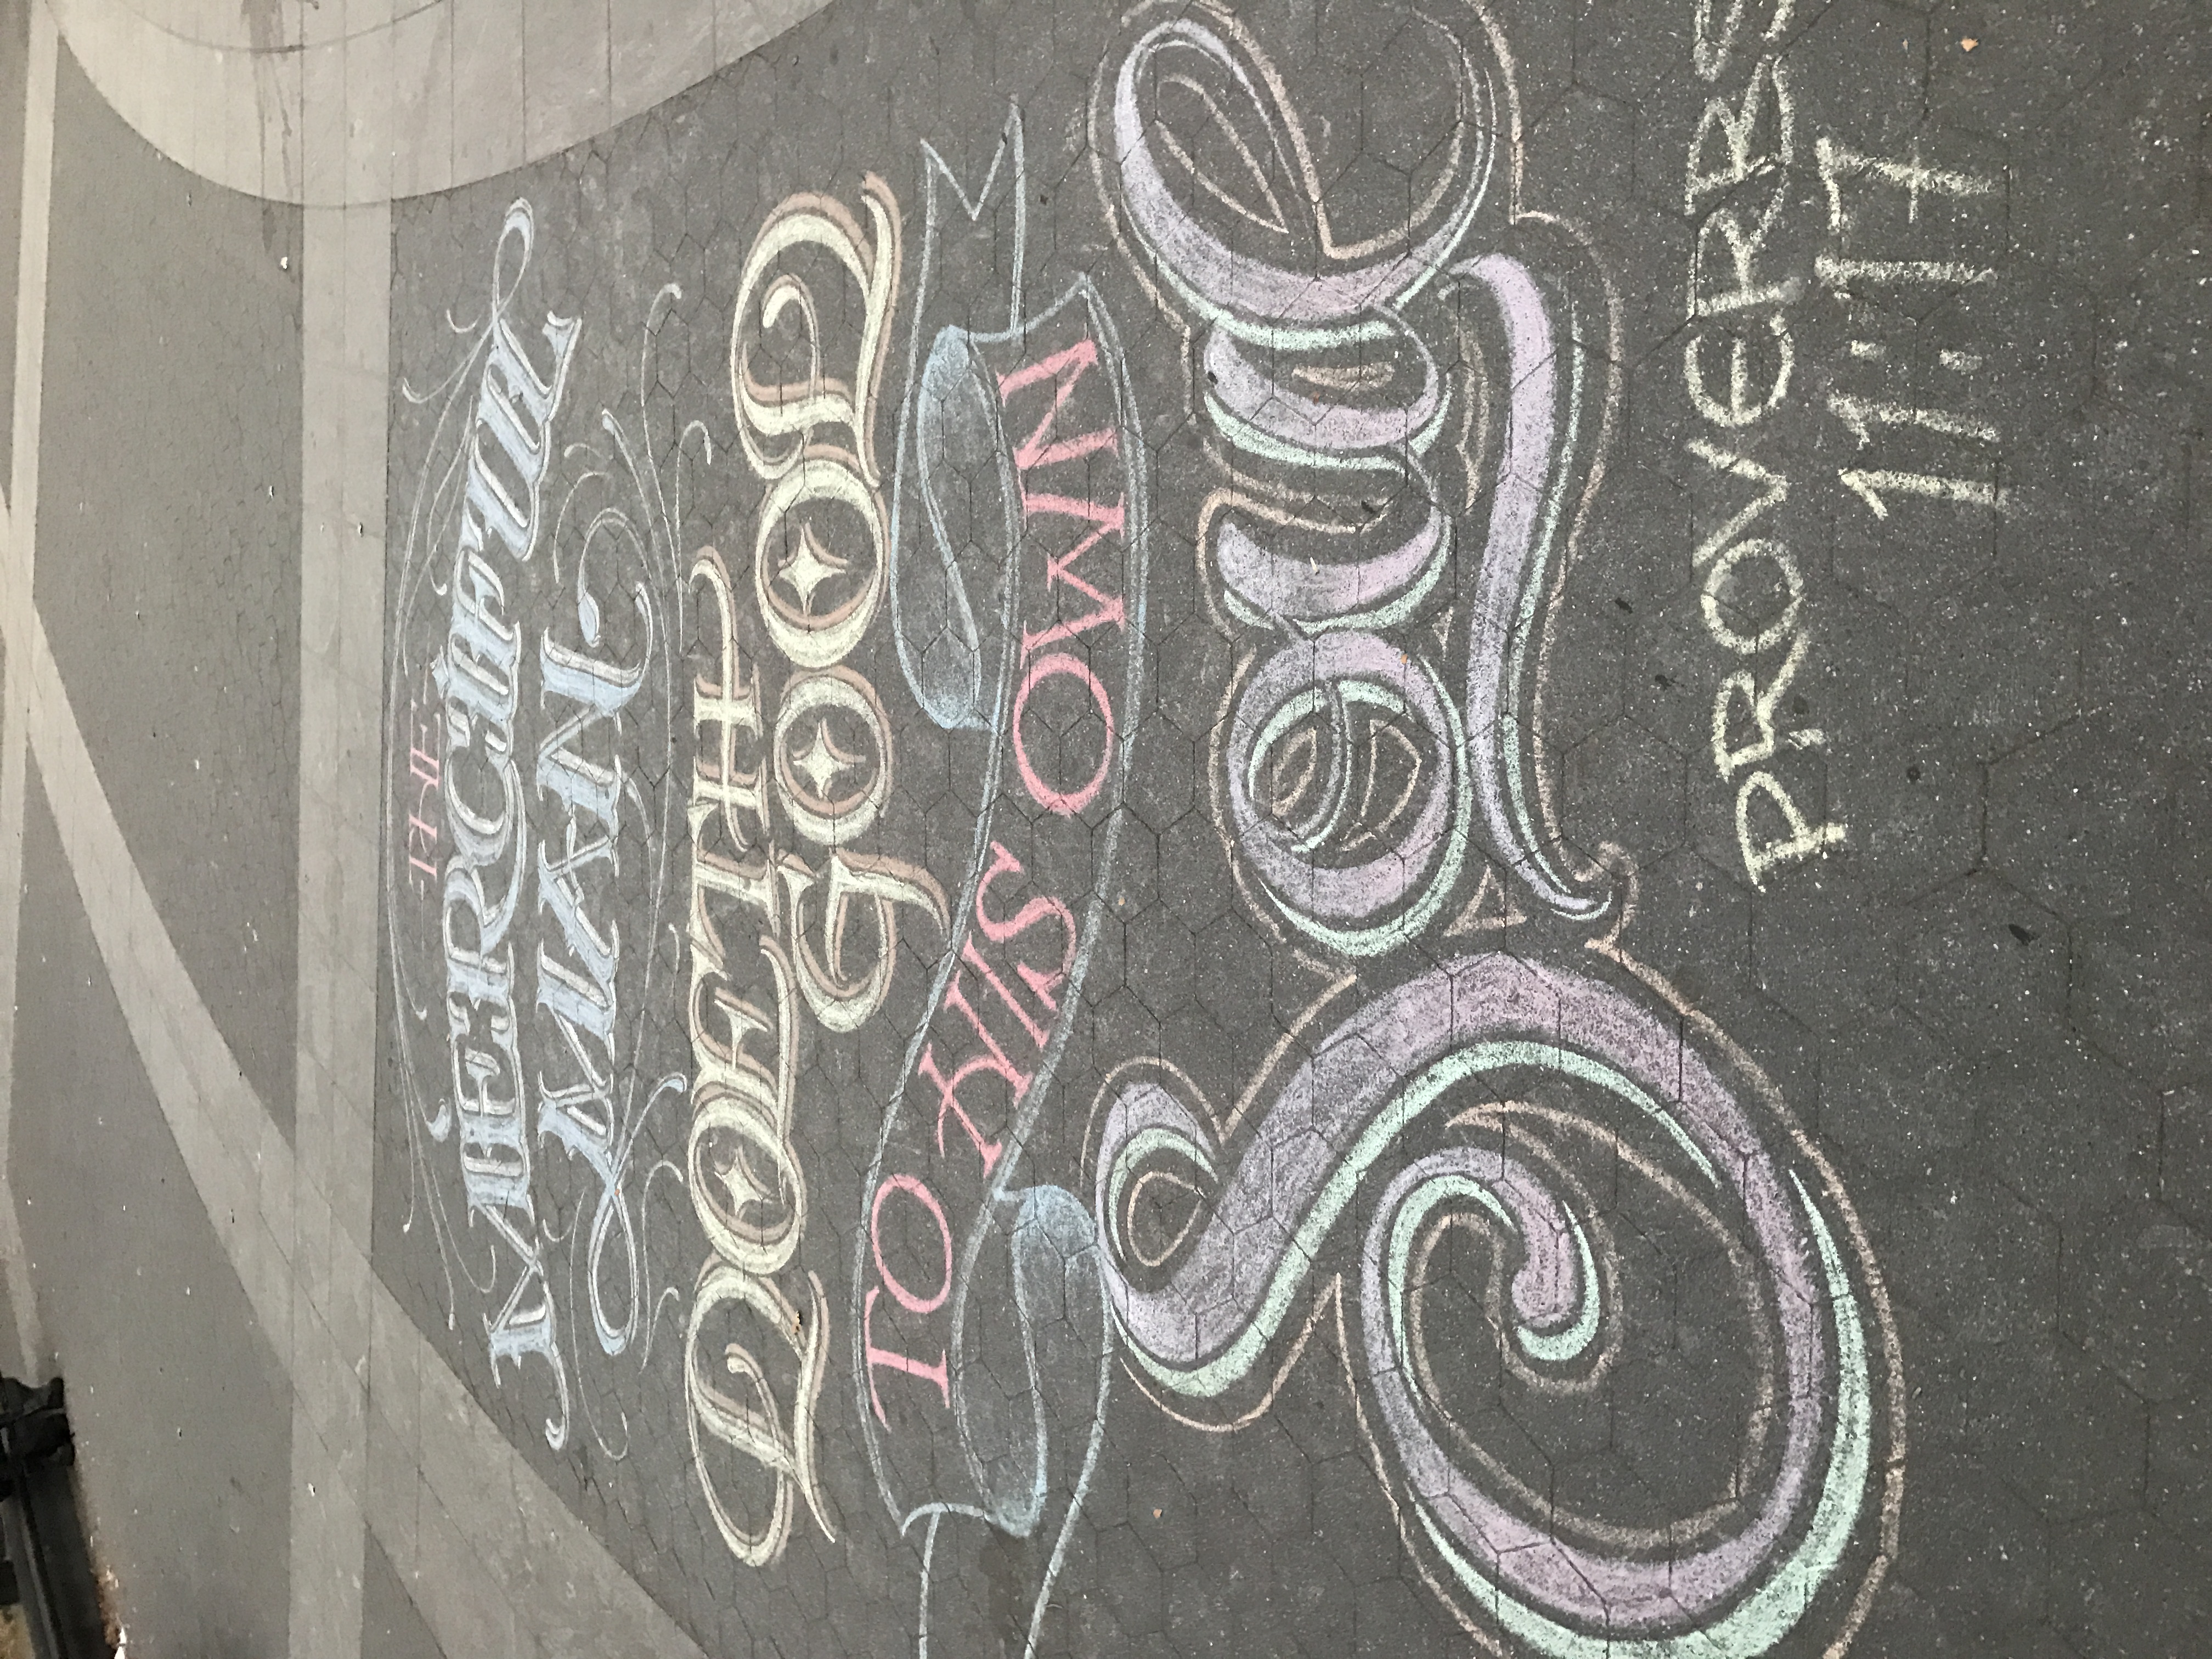 THE
MERCIFUL
MAN
DOETH
GOOD
TO HIS OWN
Soul
PROVERBS
11:17